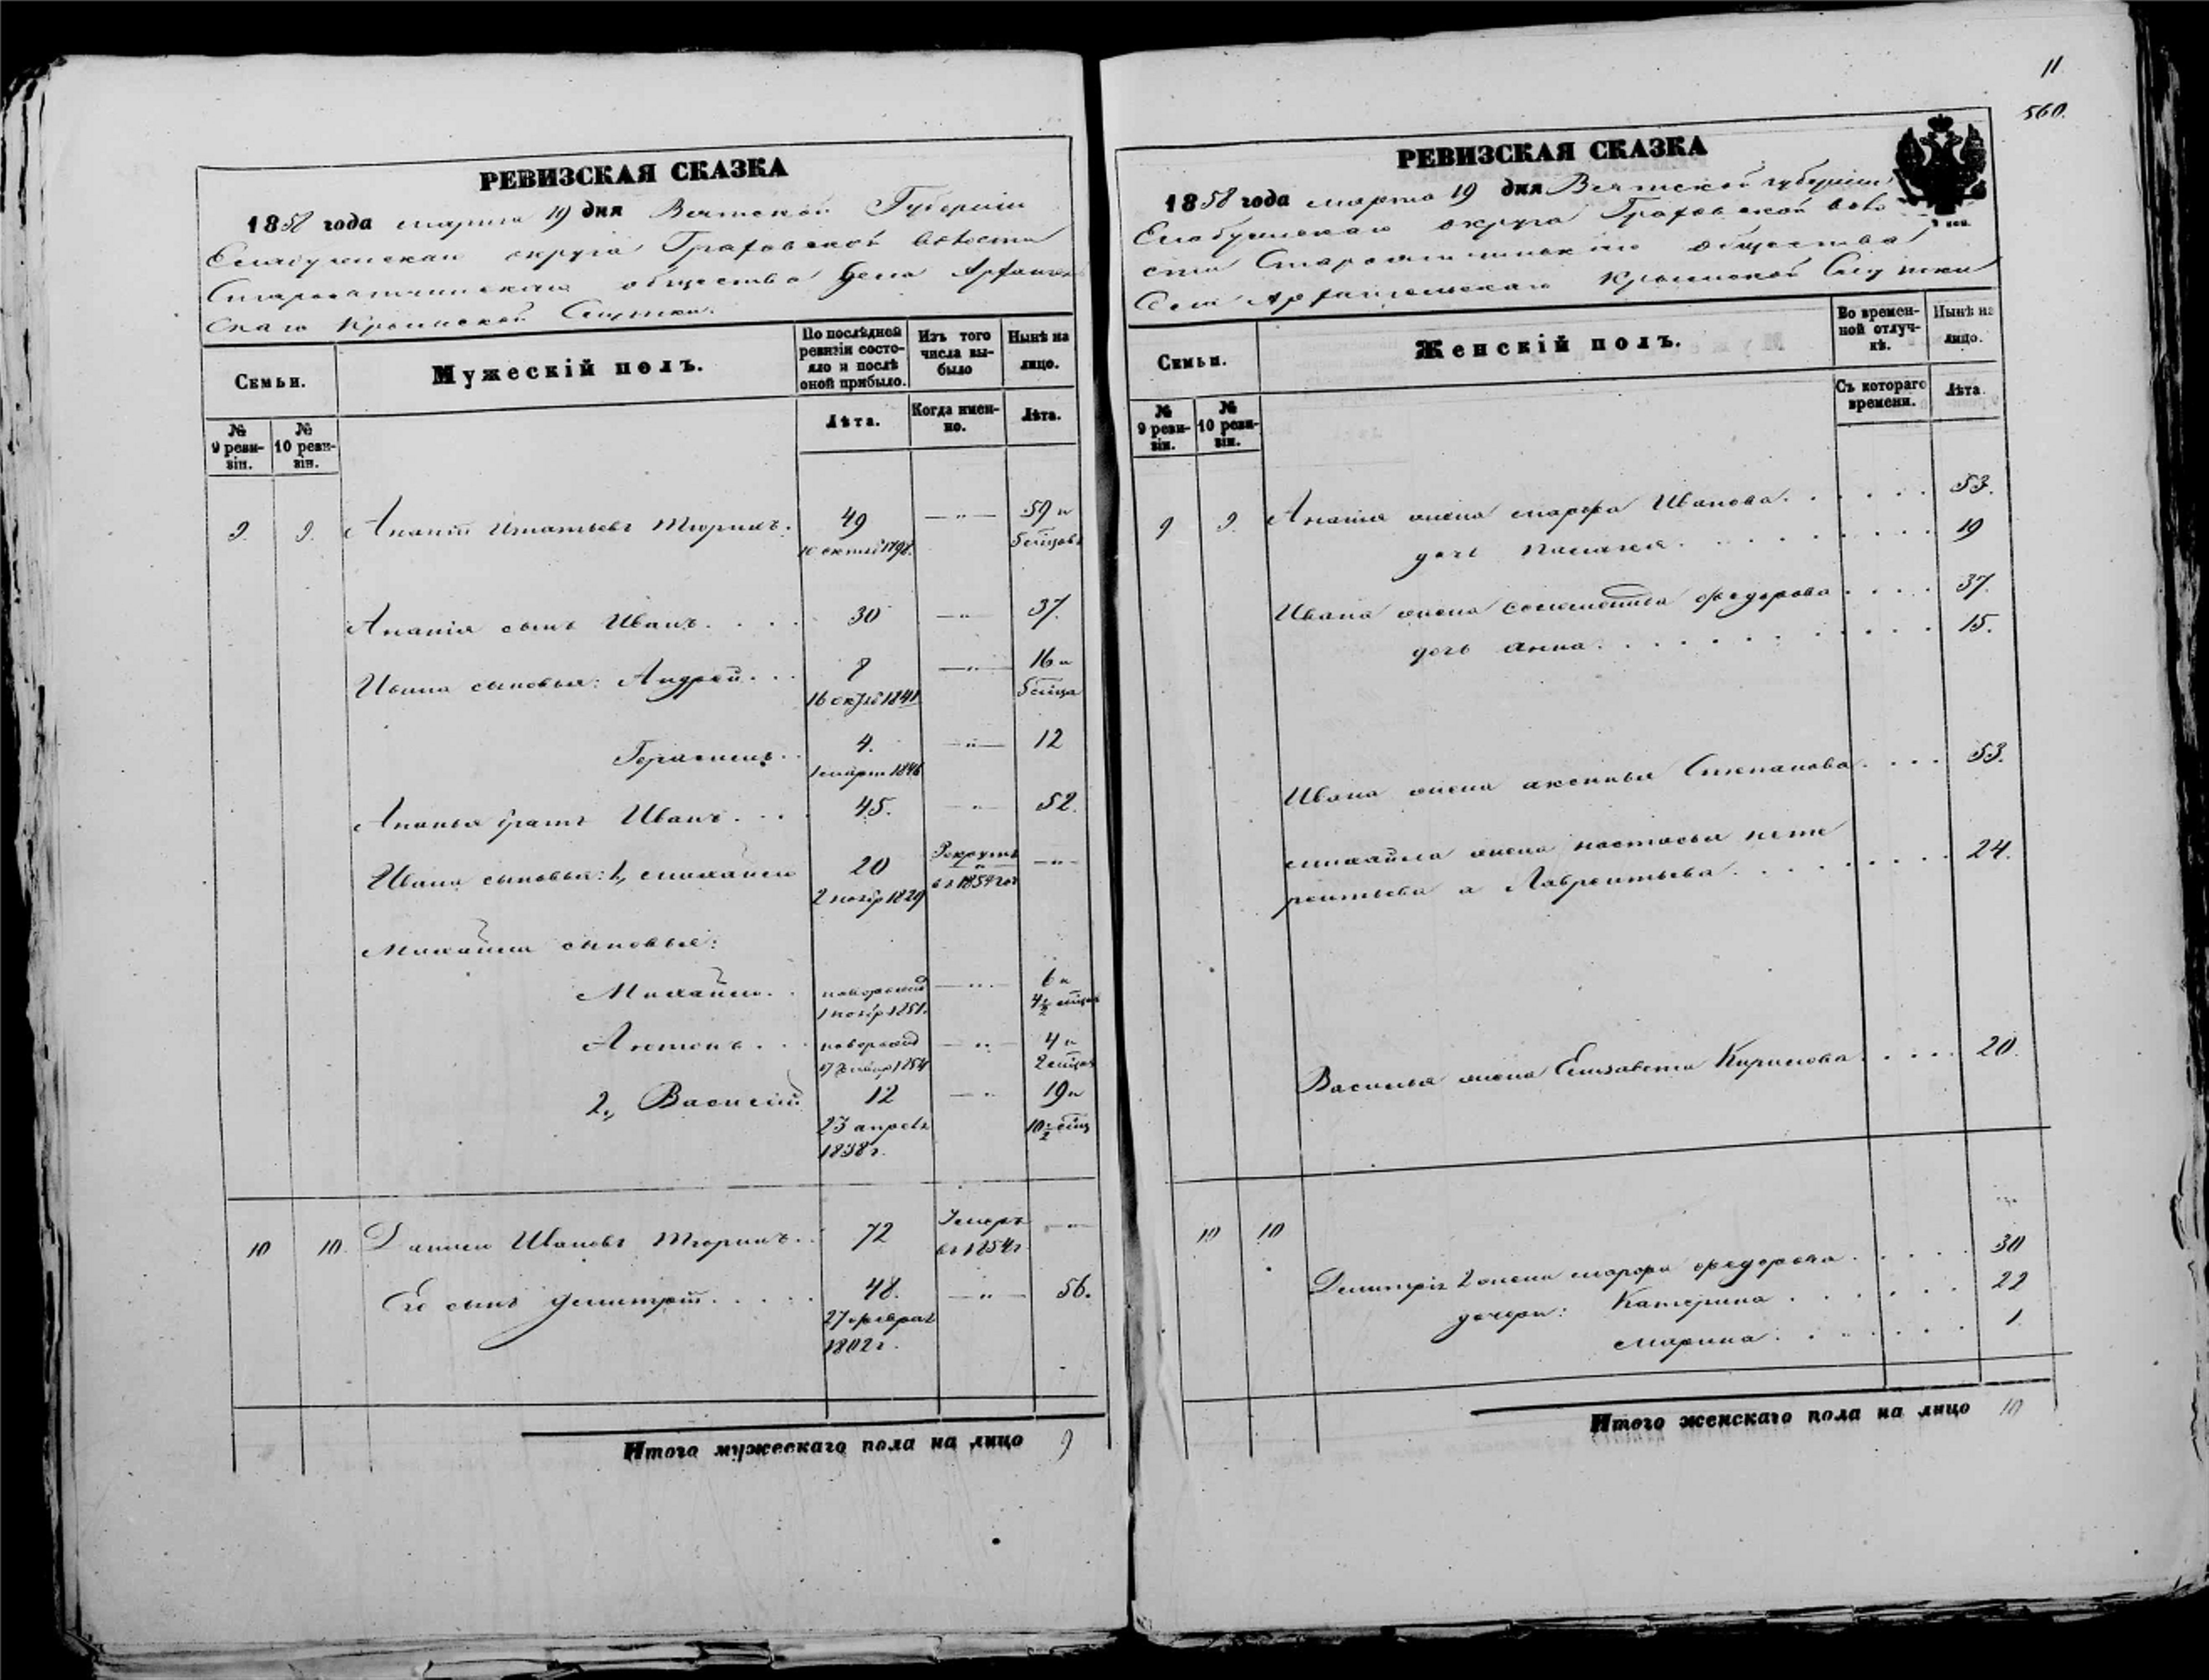 11
560.
РЕВИЗСКАЯ СКАЗКА
1858 года марта 19 дня Вятской Губерніи
Елабужскаго округа Граховской волости
общества Села Архангель
скаго Крымской Слудки.
Семьи.
Мужескій полъ.
По послѣдней ревизіи состояло и послѣ оной прибыло.
Изъ того числа выбыло
Нынѣ на лицо.
№ 9 ревизіи.
№ 10 ревизіи.
Лѣта.
Когда именно.
Лѣта.
9. 9. Ананій Игнатьевъ Тюринъ. 49 —„— 59 и
10 октяб 1798. 5 мѣсцовъ
Ананія сынъ Иванъ. . . . 30 —„— 37.
Ивана сыновья: Андрей. . . 8 —„— 16 и
16 октяб 1841 5 мѣсца
Герасимъ. . 4. —„— 12
1 март 1846
Ананья братъ Иванъ. . . . 45. —„— 52.
Ивана сыновья: 1, Михайло 20 Рекрутъ —„—
2 нояб 1829 въ 1854 год
Михайла сыновья:
Михайло. . новорожд —„— 6 и
1 нояб 1851. 4½ мѣсцов
Антонъ. . . новорожд —„— 4 и
17 генвар 1854 2 мѣсцов
2, Василій 12 —„— 19 и
23 апрель 10½ мѣсц
1838 г.
10 10. Данило Ивановъ Тюринъ. . 72 Умеръ —„—
въ 1854 г
Его сынъ Дмитрій. . . . . 48. —„— 56.
27 февраль
1802 г.
Итого мужескаго пола на лицо 9
РЕВИЗСКАЯ СКАЗКА
1858 года марта 19 дня Вятской губерніи
Елабужскаго округа Граховской воло
сти общества
Села Архангельскаго Крымской Слудки
Семьи.
Женскій полъ.
Во временной отлучкѣ.
Нынѣ на лицо.
№ 9 ревизіи.
№ 10 ревизіи.
Съ котораго времени.
Лѣта.
9 9. Ананія жена Марфа Иванова. . . . . . 53.
дочь Пелагея. . . . . . . . . . 19
Ивана жена Соломонида Федорова . . . . 37.
дочь Анна. . . . . . . . . . . 15.
Ивана жена Аксинья Степанова. . . . 53.
Михайла жена Настасья
а Лаврентьева. . . . . . . . 24.
Василья жена Елизавета Кирилова . . . . . 20.
10 10
Дмитрія 2 жена Марфа Федорова . . . . . 30
дочери: Катерина . . . . . . . 22
Марина: . . . . . . . 1
Итого женскаго пола на лицо 10